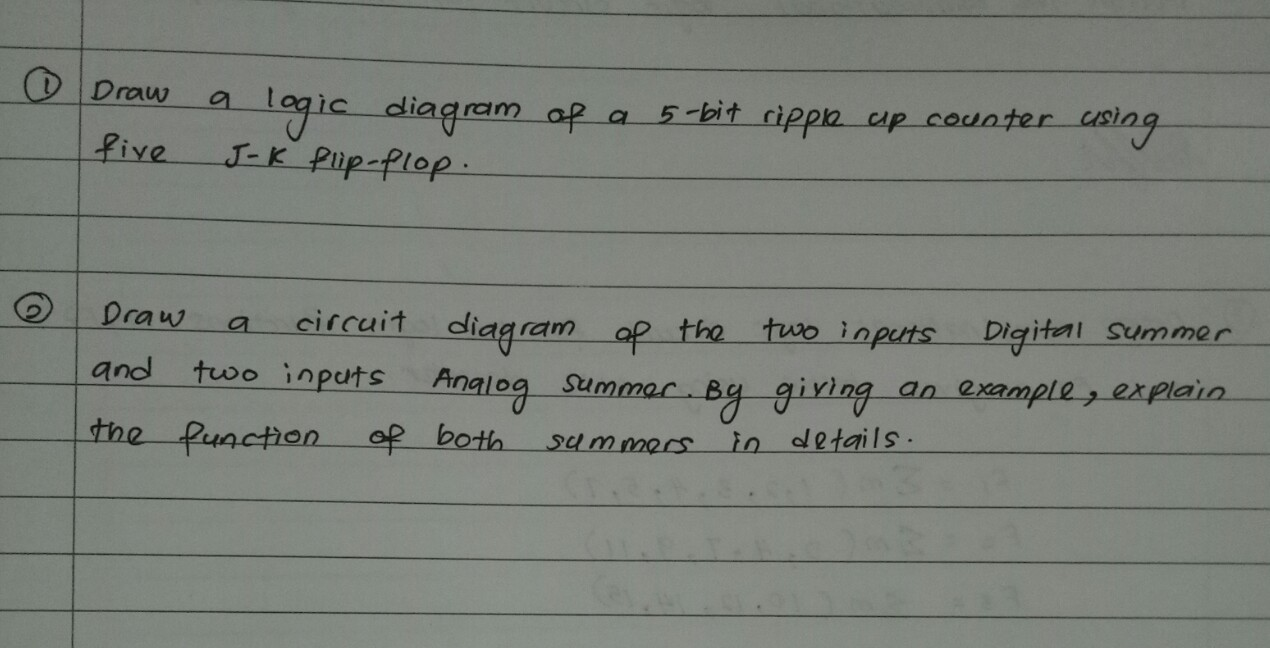 ① Draw a logic diagram of a 5-bit ripple up counter using
five J-K flip-flop.
② Draw a circuit diagram of the two inputs Digital summer
and two inputs Analog summer. By giving an example, explain
the function of both summers in details.